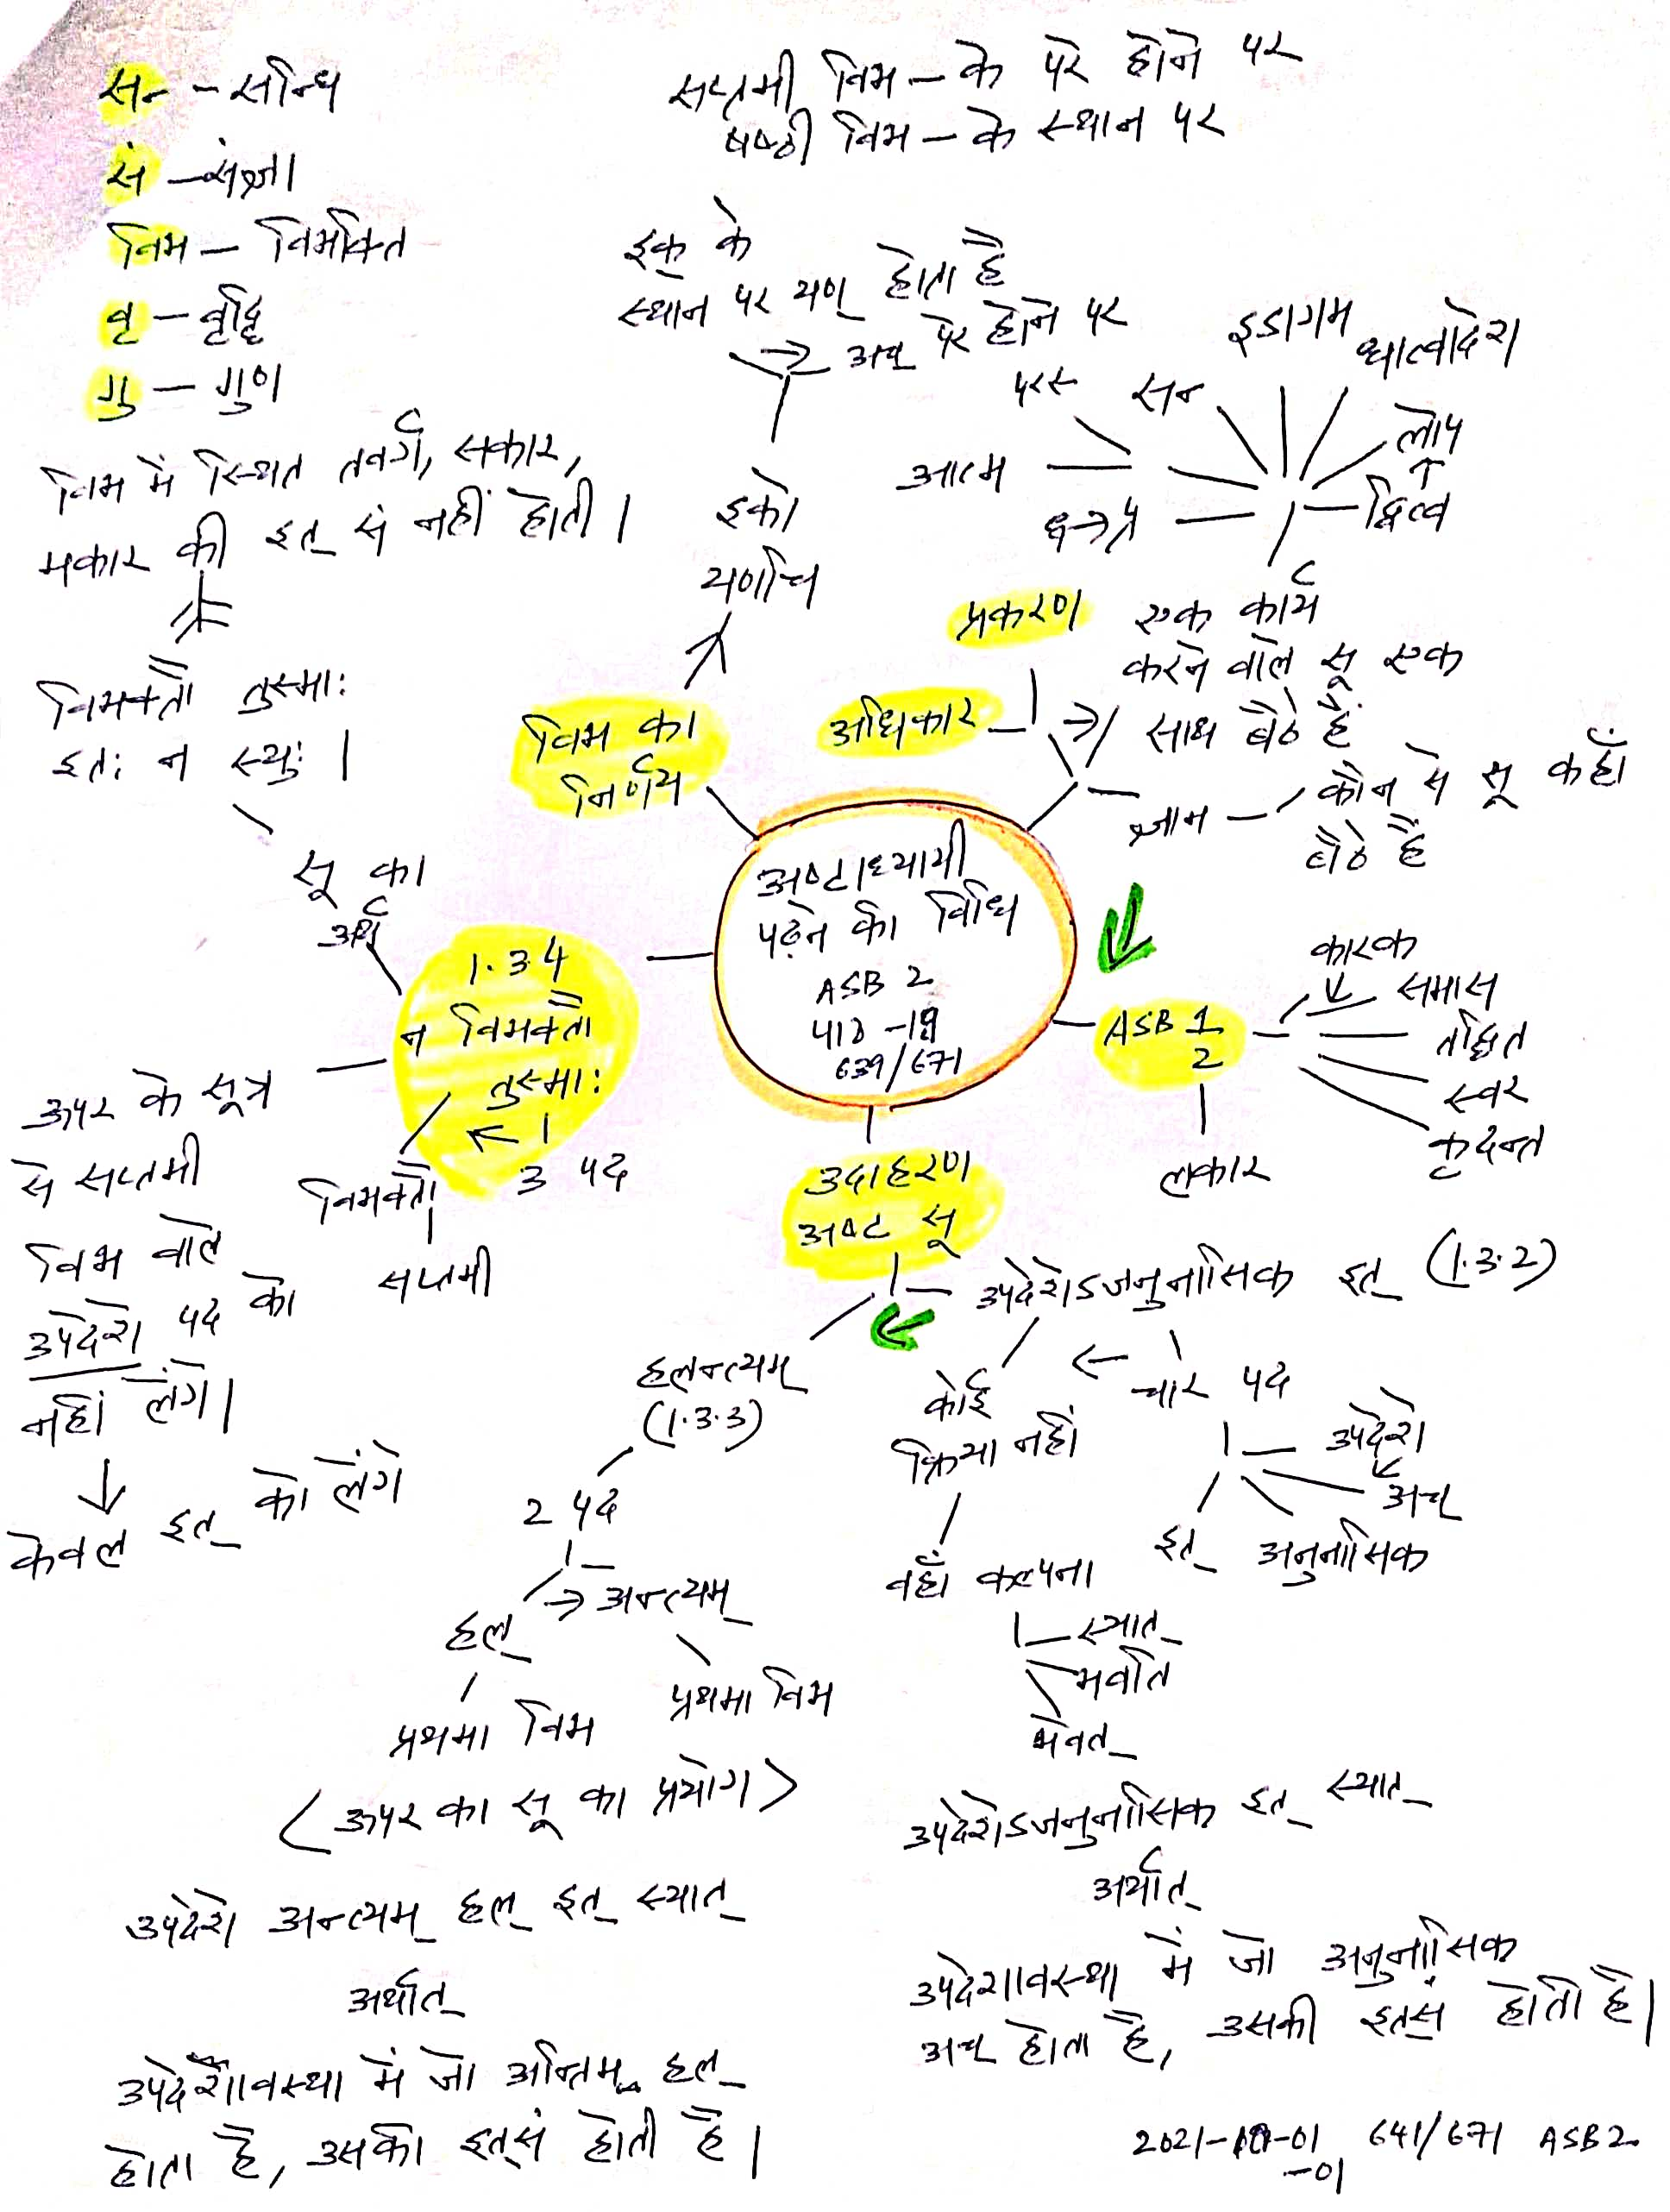 सन् - सन्धि
सं - संज्ञा
विभ - विभक्ति
वृ - वृद्धि
गु - गुण
सप्तमी विभ - के परे होने पर
षष्ठी विभ - के स्थान पर
इक् के
स्थान पर यण् होता है
→ अच् परे होने पर
इको
यणचि
विभ का
निर्णय
विभ में स्थित तवर्ग, सकार,
मकार की इत् सं नहीं होती।
विभक्तौ तुस्माः
इतः न स्युः।
सू का
अर्थ
1.3.4
न विभक्तौ
तुस्माः
3 पद
विभक्तौ
सप्तमी
ऊपर के सूत्र
से सप्तमी
विभ वाले
उपदेशे पद को
नहीं लेंगे।
↓
केवल इत् को लेंगे
अष्टाध्यायी
पढ़ने की विधि
ASB 2
पाठ -19
639/671
प्रकरण
अधिकार
एक कार्य
करने वाले सू एक
साथ बैठे हैं
ज्ञान - कौन से सू कहाँ
बैठे हैं
इडागम
धात्वादेश
लोप
↑
द्वित्व
सन्
परस्
आत्म
ASB 1
2
लकार
कारक
समास
तद्धित
स्वर
कृदन्त
उदाहरण
अष्ट सू
उपदेशेऽजनुनासिक इत् (1.3.2)
← चार पद
उपदेशे
अच्
अनुनासिक
इत्
कोई
क्रिया नहीं
वहाँ कल्पना
स्यात्
भवति
भवेत्
उपदेशेऽजनुनासिक इत् स्यात्
अर्थात्
उपदेशावस्था में जो अनुनासिक
अच् होता है, उसकी इत्सं होती है।
हलन्त्यम्
(1.3.3)
2 पद
→ अन्त्यम्
हल्
प्रथमा विभ
प्रथमा विभ
< ऊपर का सू का प्रयोग >
उपदेशे अन्त्यम् हल् इत् स्यात्
अर्थात्
उपदेशावस्था में जो अन्तिम हल्
होता है, उसकी इत्सं होती है।
641/671 ASB2